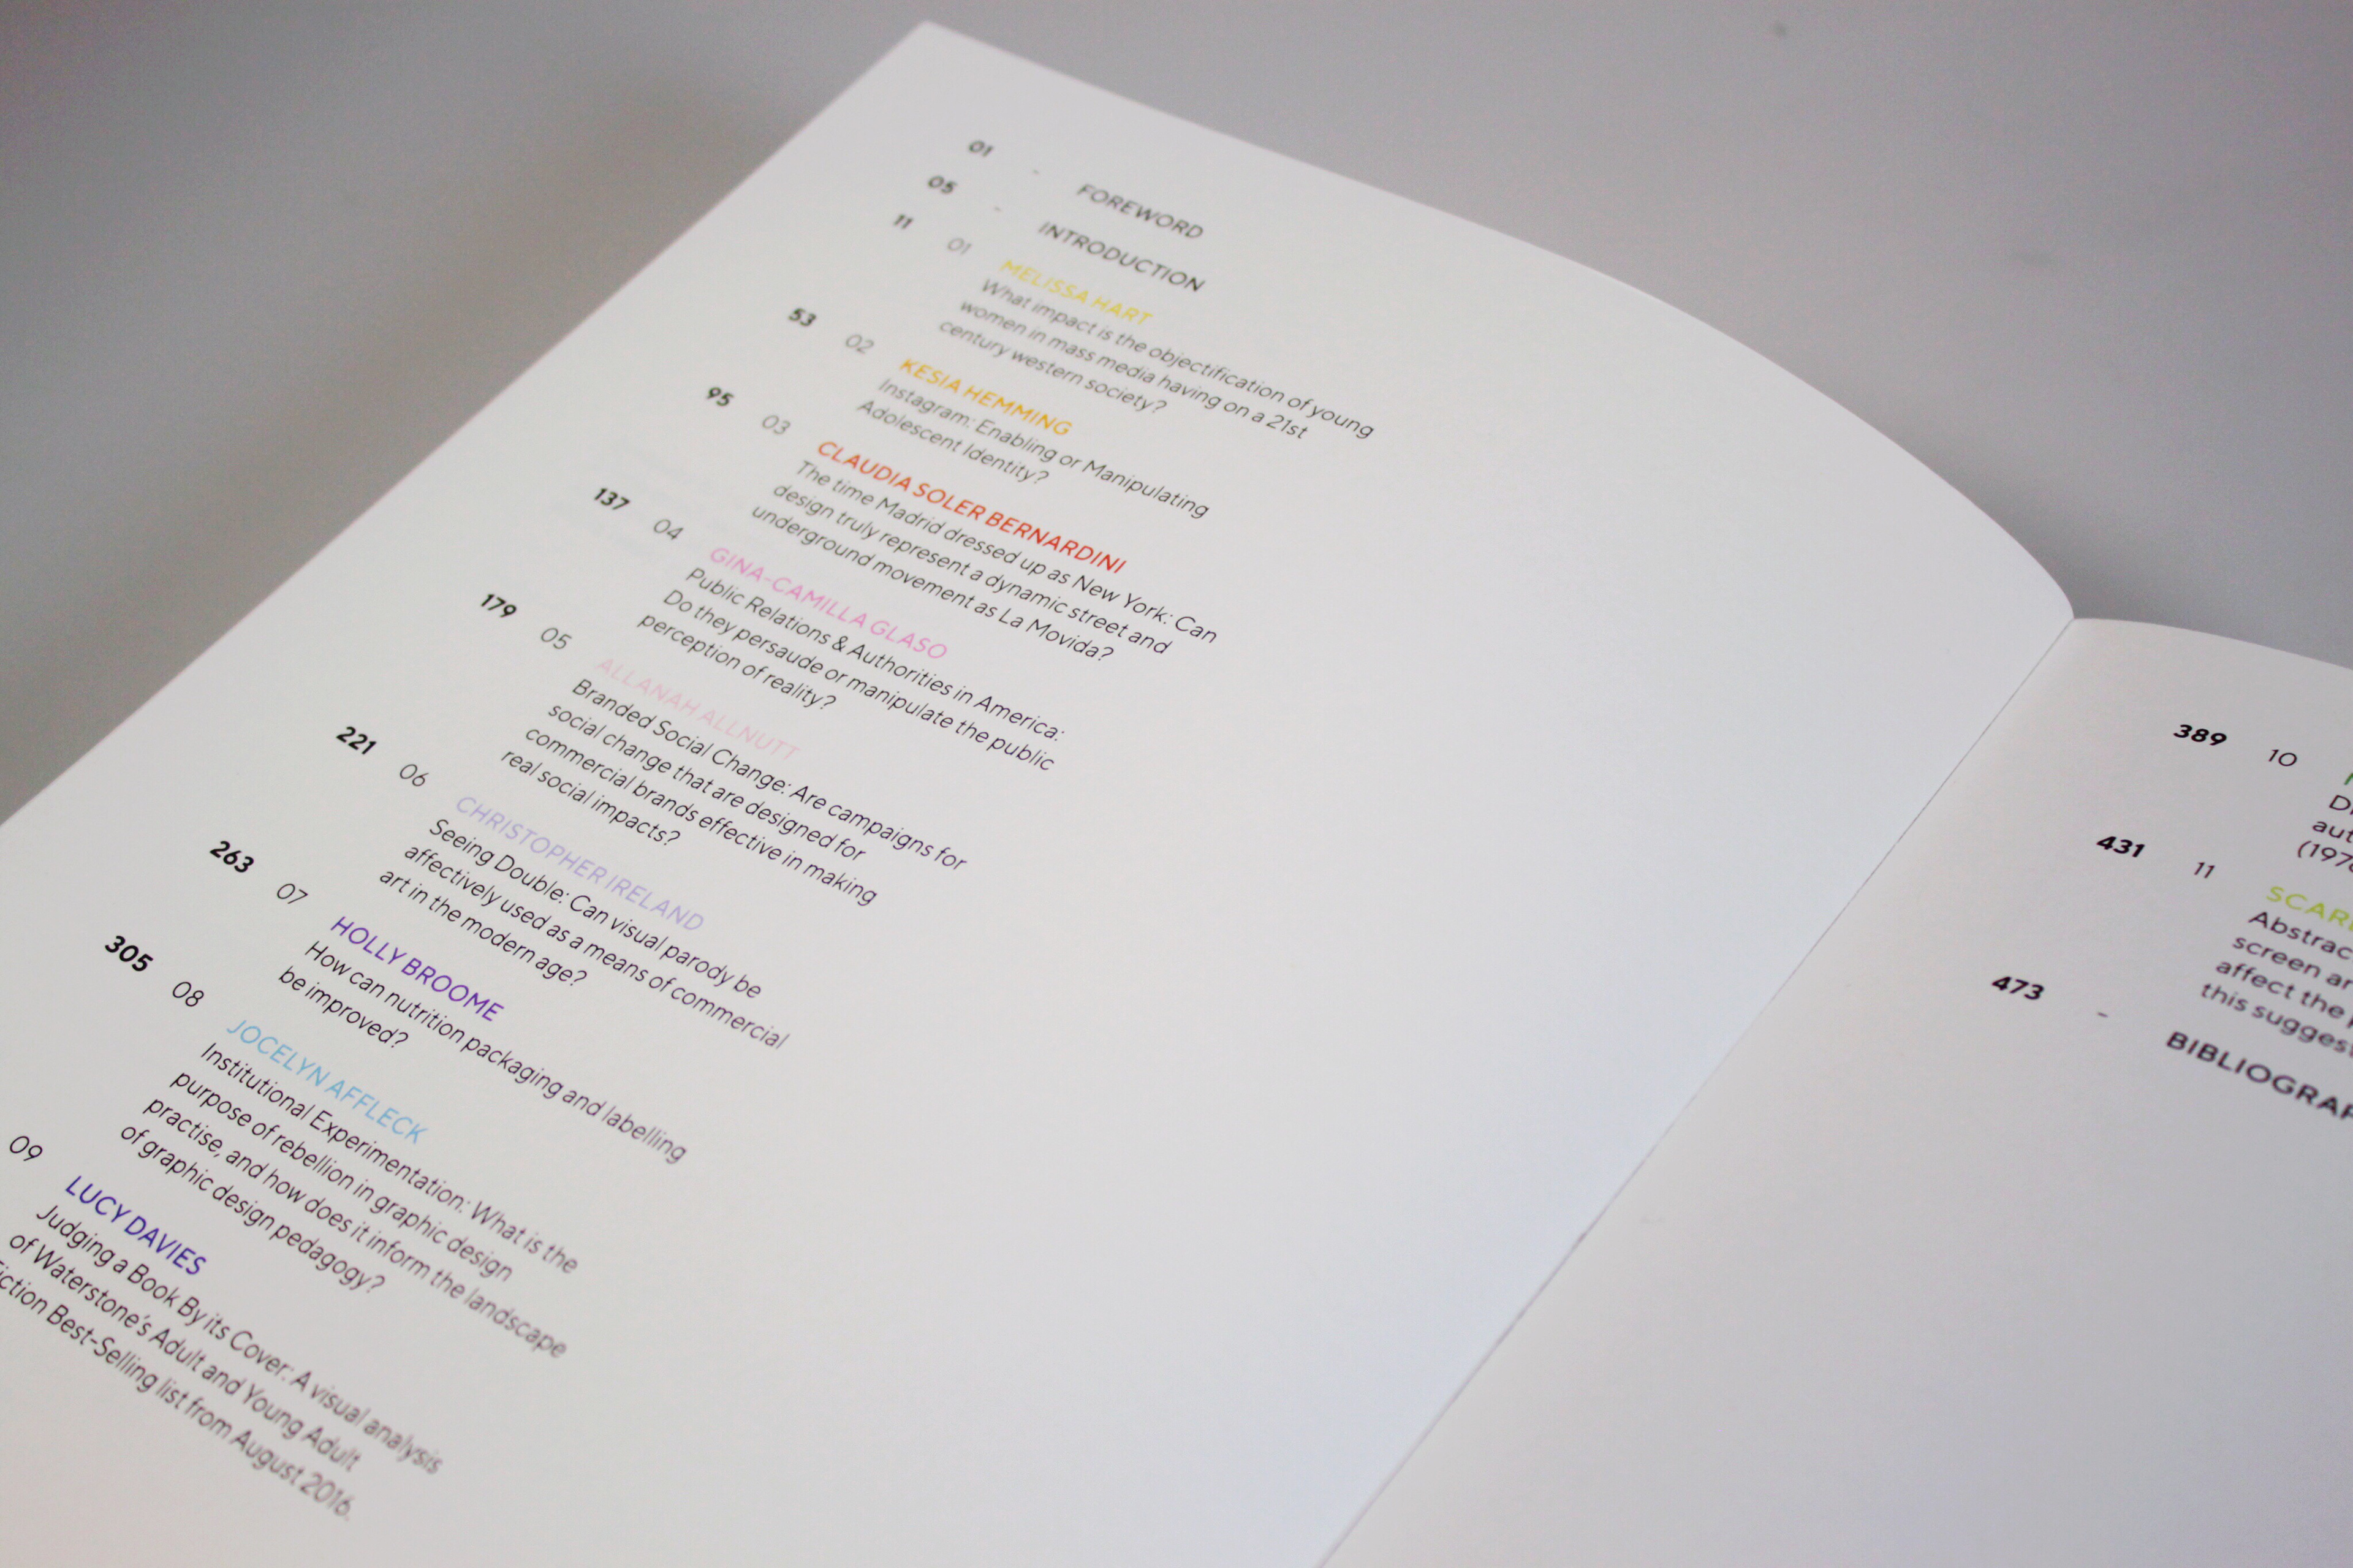 01 - FOREWORD
05 - INTRODUCTION
11 01 MELISSA HART
What impact is the objectification of young
women in mass media having on a 21st
century western society?
53 02 KESIA HEMMING
Instagram: Enabling or Manipulating
Adolescent Identity?
95 03 CLAUDIA SOLER BERNARDINI
The time Madrid dressed up as New York: Can
design truly represent a dynamic street and
underground movement as La Movida?
137 04 GINA-CAMILLA GLASO
Public Relations & Authorities in America:
Do they persaude or manipulate the public
perception of reality?
179 05 ALLANAH ALLNUTT
Branded Social Change: Are campaigns for
social change that are designed for
commercial brands effective in making
real social impacts?
221 06 CHRISTOPHER IRELAND
Seeing Double: Can visual parody be
affectively used as a means of commercial
art in the modern age?
263 07 HOLLY BROOME
How can nutrition packaging and labelling
be improved?
305 08 JOCELYN AFFLECK
Institutional Experimentation: What is the
purpose of rebellion in graphic design
practise, and how does it inform the landscape
of graphic design pedagogy?
09 LUCY DAVIES
Judging a Book By its Cover: A visual analysis
of Waterstone's Adult and Young Adult
Best-Selling list from August 2016.
389 10
431 11
screen
affect the
this
473 -